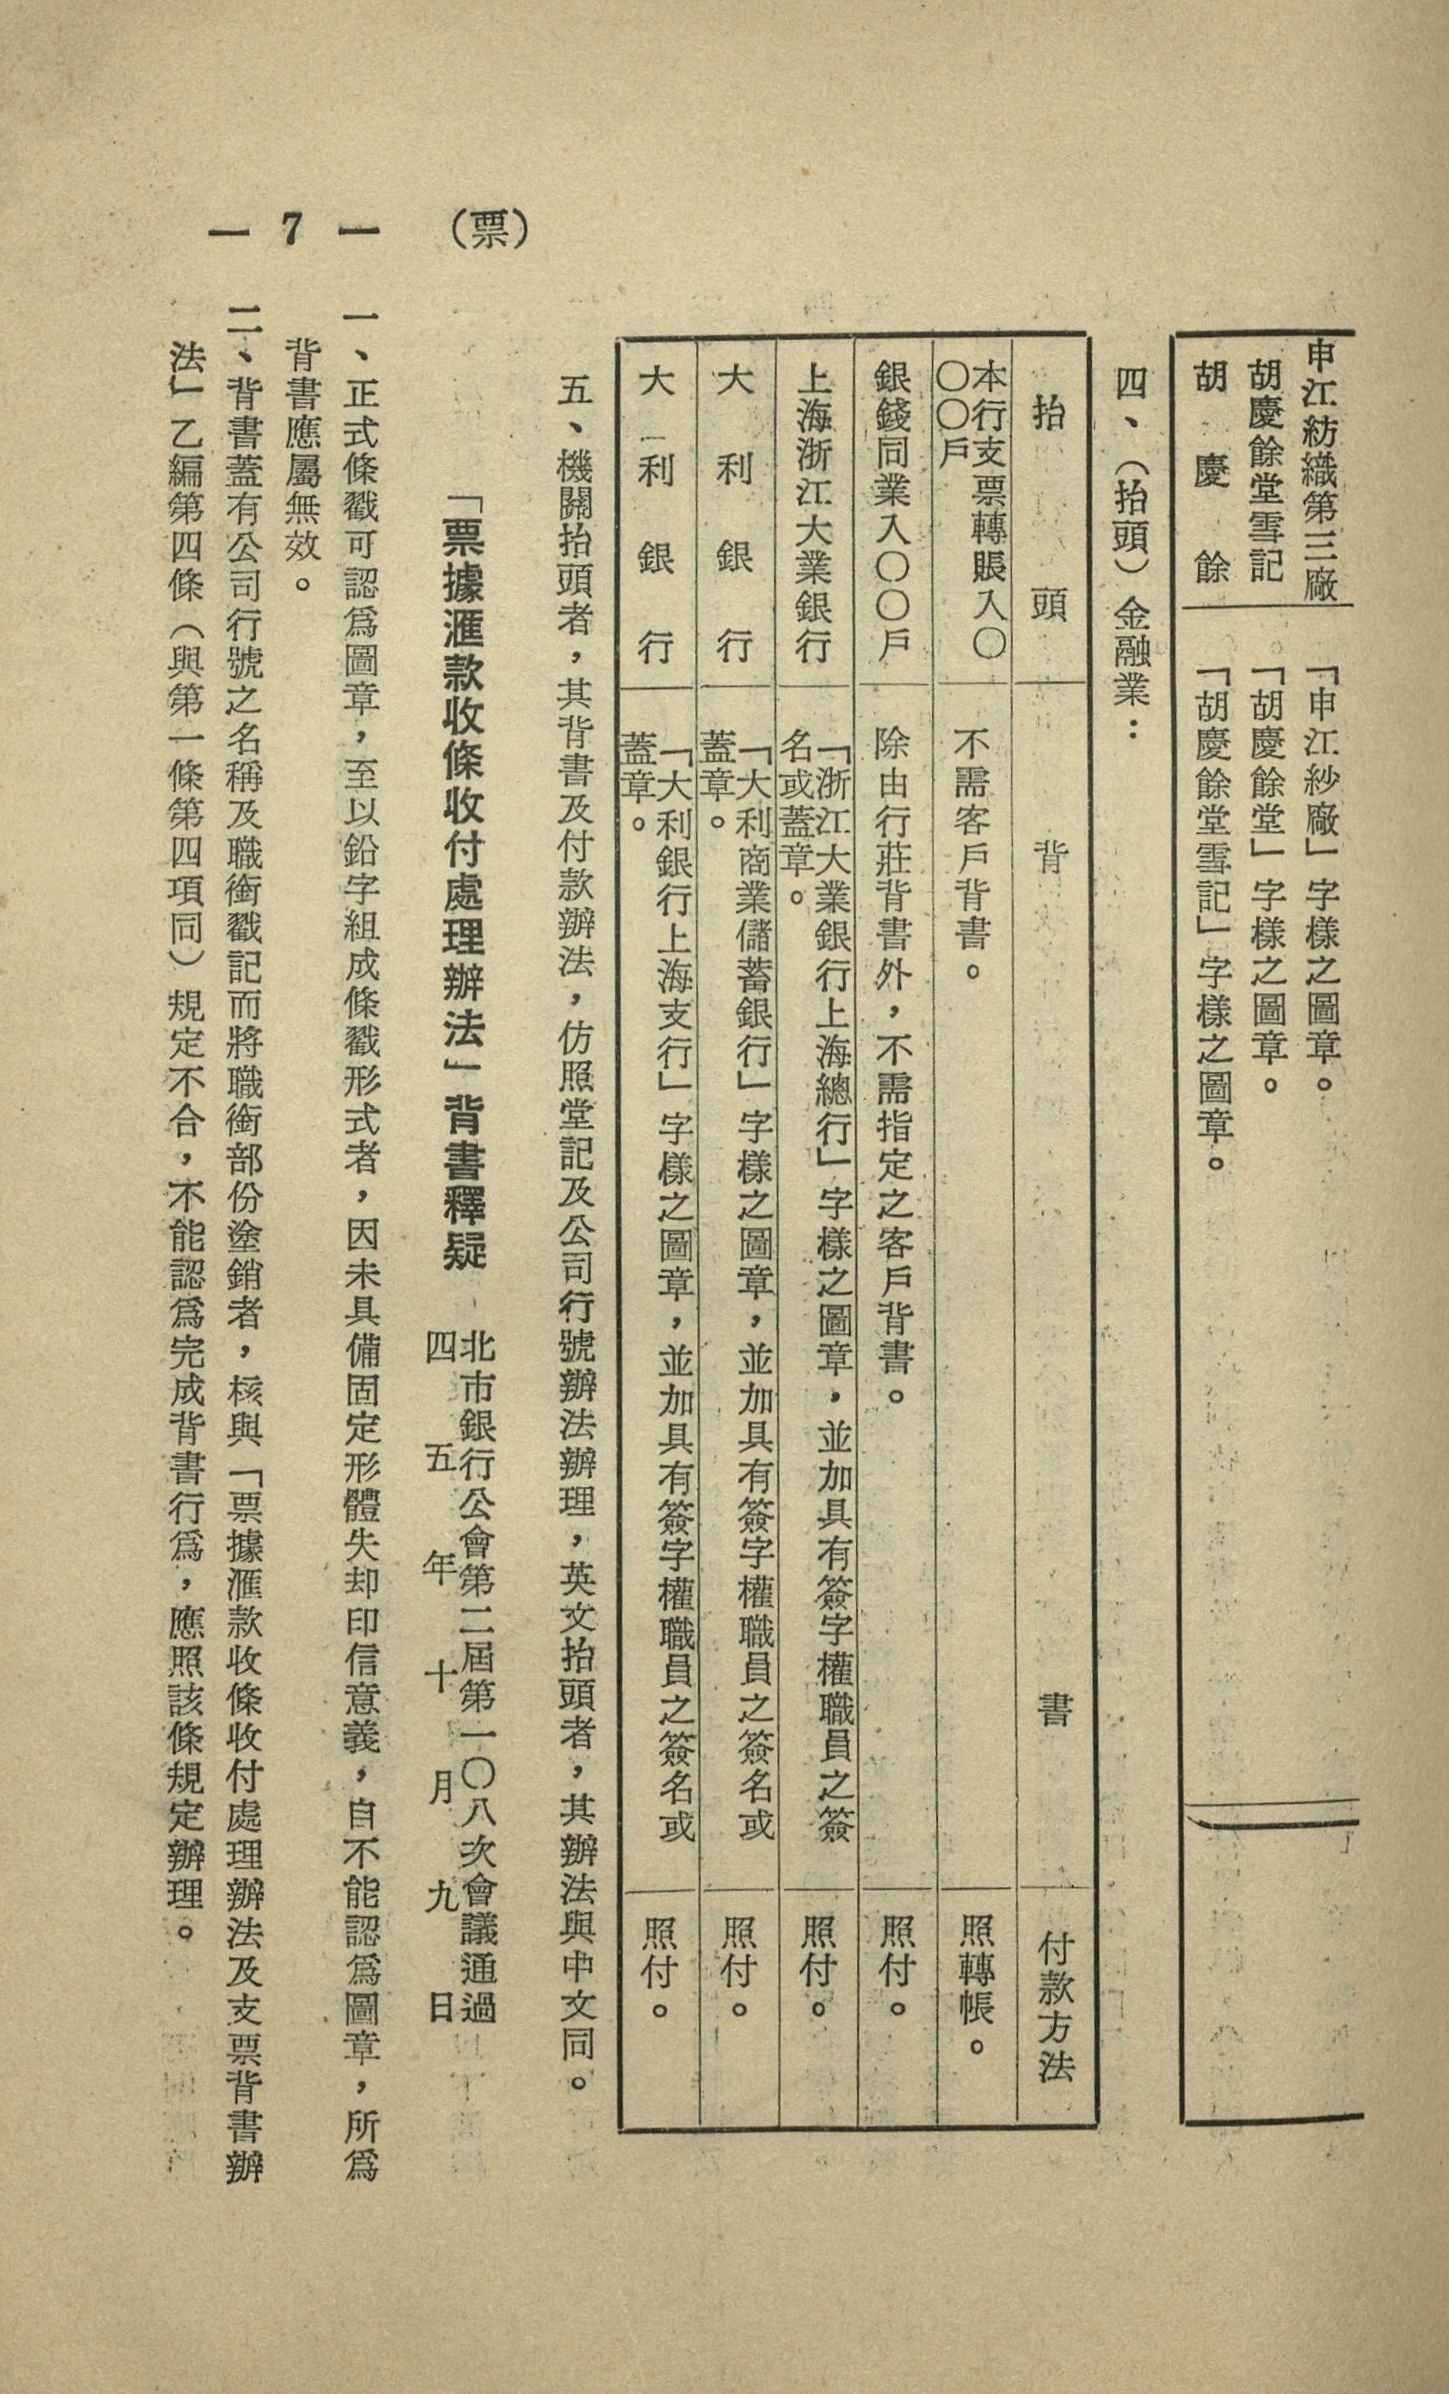 申江紡織第三廠 「申江紗廠」字樣之圖章。
胡慶餘堂雪記 「胡慶餘堂」字樣之圖章。
胡慶餘 「胡慶餘堂雪記」字樣之圖章。
四、（抬頭）金融業：
抬頭 背書 付款方法
本行支票轉賬入〇
〇〇戶 不需客戶背書。 照轉帳。
銀錢同業入〇〇戶 除由行莊背書外，不需指定之客戶背書。 照付。
上海浙江大業銀行 「浙江大業銀行上海總行」字樣之圖章，並加具有簽字權職員之簽
名或蓋章。 照付。
大利銀行 「大利商業儲蓄銀行」字樣之圖章，並加具有簽字權職員之簽名或
蓋章。 照付。
大利銀行 「大利銀行上海支行」字樣之圖章，並加具有簽字權職員之簽名或
蓋章。 照付。
五、機關抬頭者，其背書及付款辦法，仿照堂記及公司行號辦法辦理，英文抬頭者，其辦法與中文同。
「票據滙款收條收付處理辦法」背書釋疑
北市銀行公會第二屆第一〇八次會議通過
四五年十月九日
一、正式條戳可認爲圖章，至以鉛字組成條戳形式者，因未具備固定形體失却印信意義，自不能認爲圖章，所爲
背書應屬無效。
二、背書蓋有公司行號之名稱及職銜戳記而將職銜部份塗銷者，核與「票據滙款收條收付處理辦法及支票背書辦
法」乙編第四條（與第一條第四項同）規定不合，不能認爲完成背書行爲，應照該條規定辦理。
（票）
— 7 —